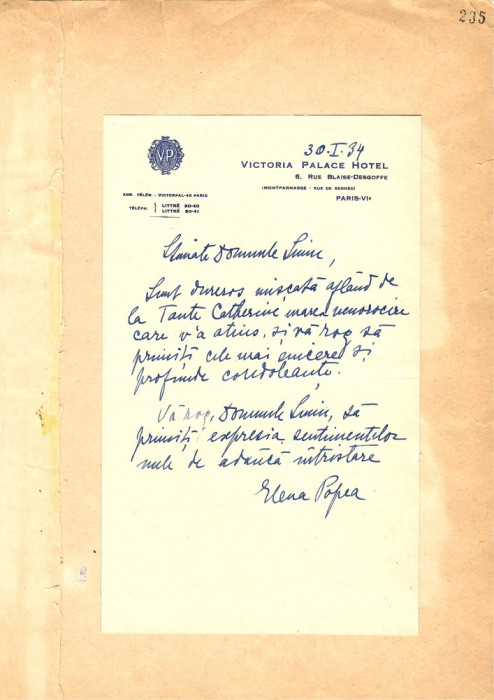 235
VP
30.I.34
VICTORIA PALACE HOTEL
6. RUE BLAISE-DESGOFFE
(MONTPARNASSE - RUE DE RENNES)
PARIS-VIe
ADR. TÉLÉG. : VICTORPAL-43 PARIS
TÉLÉPH. LITTRÉ 90-40
LITTRÉ 90-41
Stimate Domnule
Sunt dureros mișcată aflând de
la Tante Catherine, marea nenorocire
care v'a atins, și vă rog să
primiți cele mai sincere și
profunde condoleanțe.
Vă rog, Domnule să
primiți expresia sentimentelor
mele de adâncă întristare
Elena Popea